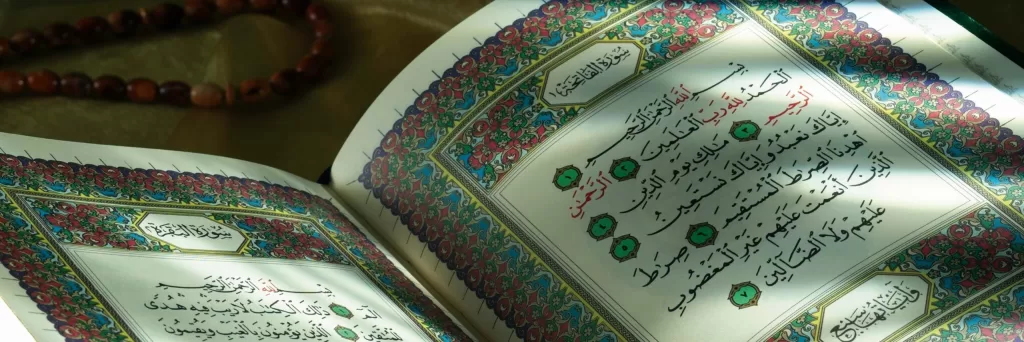 سورة الفاتحة
بسم الله الرحمن الرحيم ١
الحمد لله رب العلمين ٢ الرحمن
الرحيم ٣ ملك يوم الدين ٤
إياك نعبد وإياك نستعين ٥
اهدنا الصرط المستقيم ٦ صرط
الذين أنعمت عليهم غير المغضوب
عليهم ولا الضالين ٧
وآياتها سبع
سورة البقرة
بسم الله الرحمن الرحيم
الم ذلك الكتب لا ريب فيه هدى
الذين يؤمنون بالغيب ويقيمون